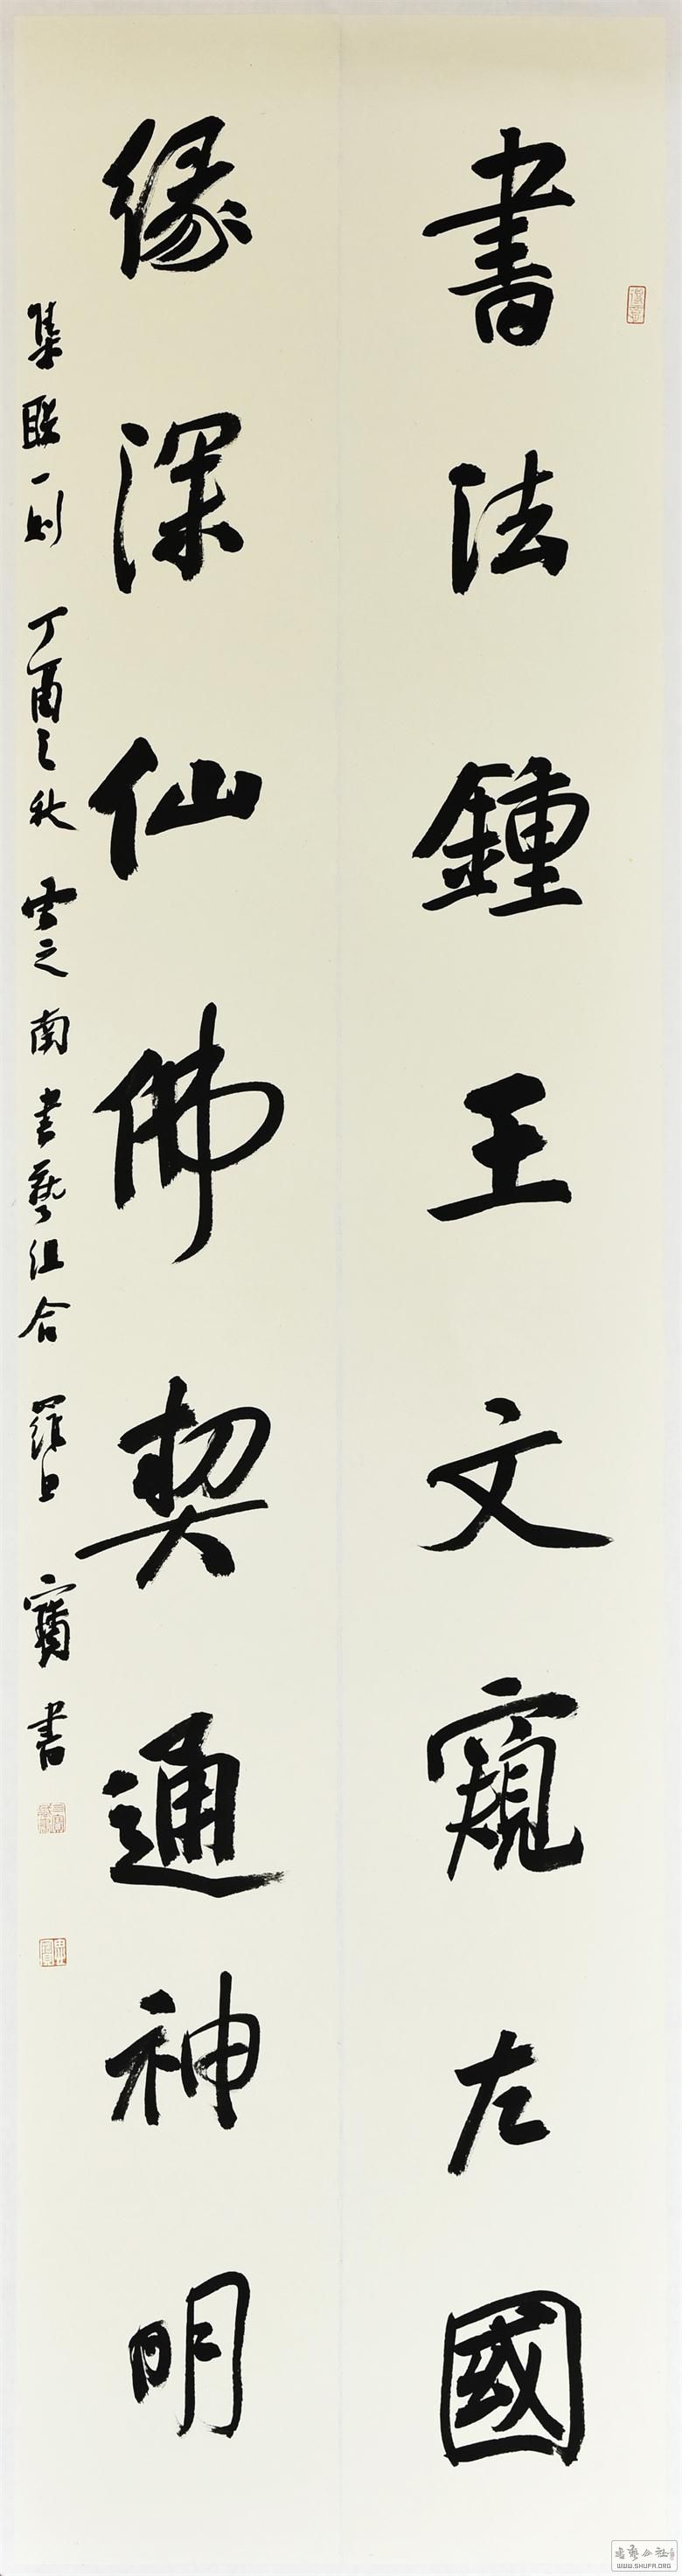 書法鍾王文窺左國
緣深仙佛契通神明
集聯一則 丁酉之秋 雲之南書藝組合 羅旦寶書
WWW.SHUFA.ORG